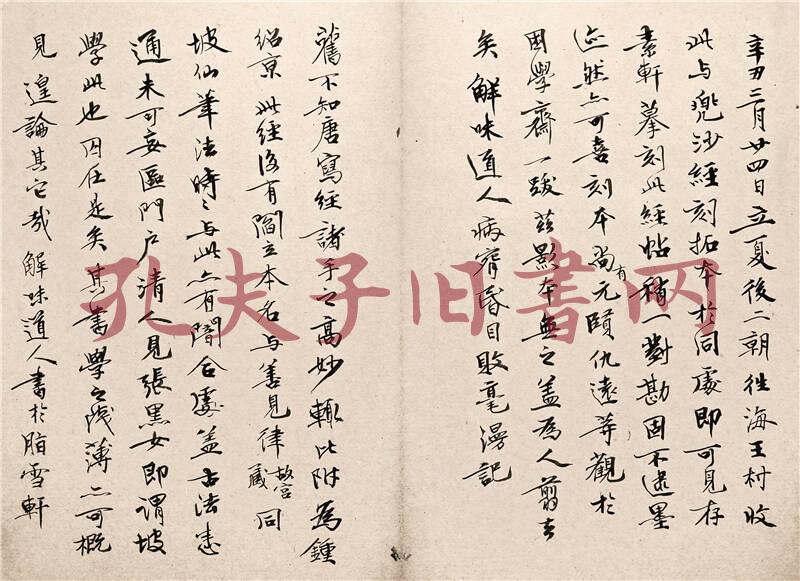 辛丑三月廿四日立夏後二朝往海王村收
此与兜沙經刻拓本於同處即可見存
素軒摹刻此經帖稍一對勘固不逮墨
迹然亦可喜刻本尚有元頤仇遠等觀於
困學齋一跋茲影本無之蓋為人剪去
矣解味道人病窘昏目敗毫漫記
舊不知唐寫經諸手之高妙輒比附為鍾
紹京此經後有閻立本名与善見律故宮藏同
坡仙筆法時〻与此亦有闇合處蓋古法悉
通未可妄區門户清人見張黑女即謂坡
學此也 在是矣其書學之淺薄亦可概
見遑論其它哉解味道人書於脂雪軒
孔夫子旧书网